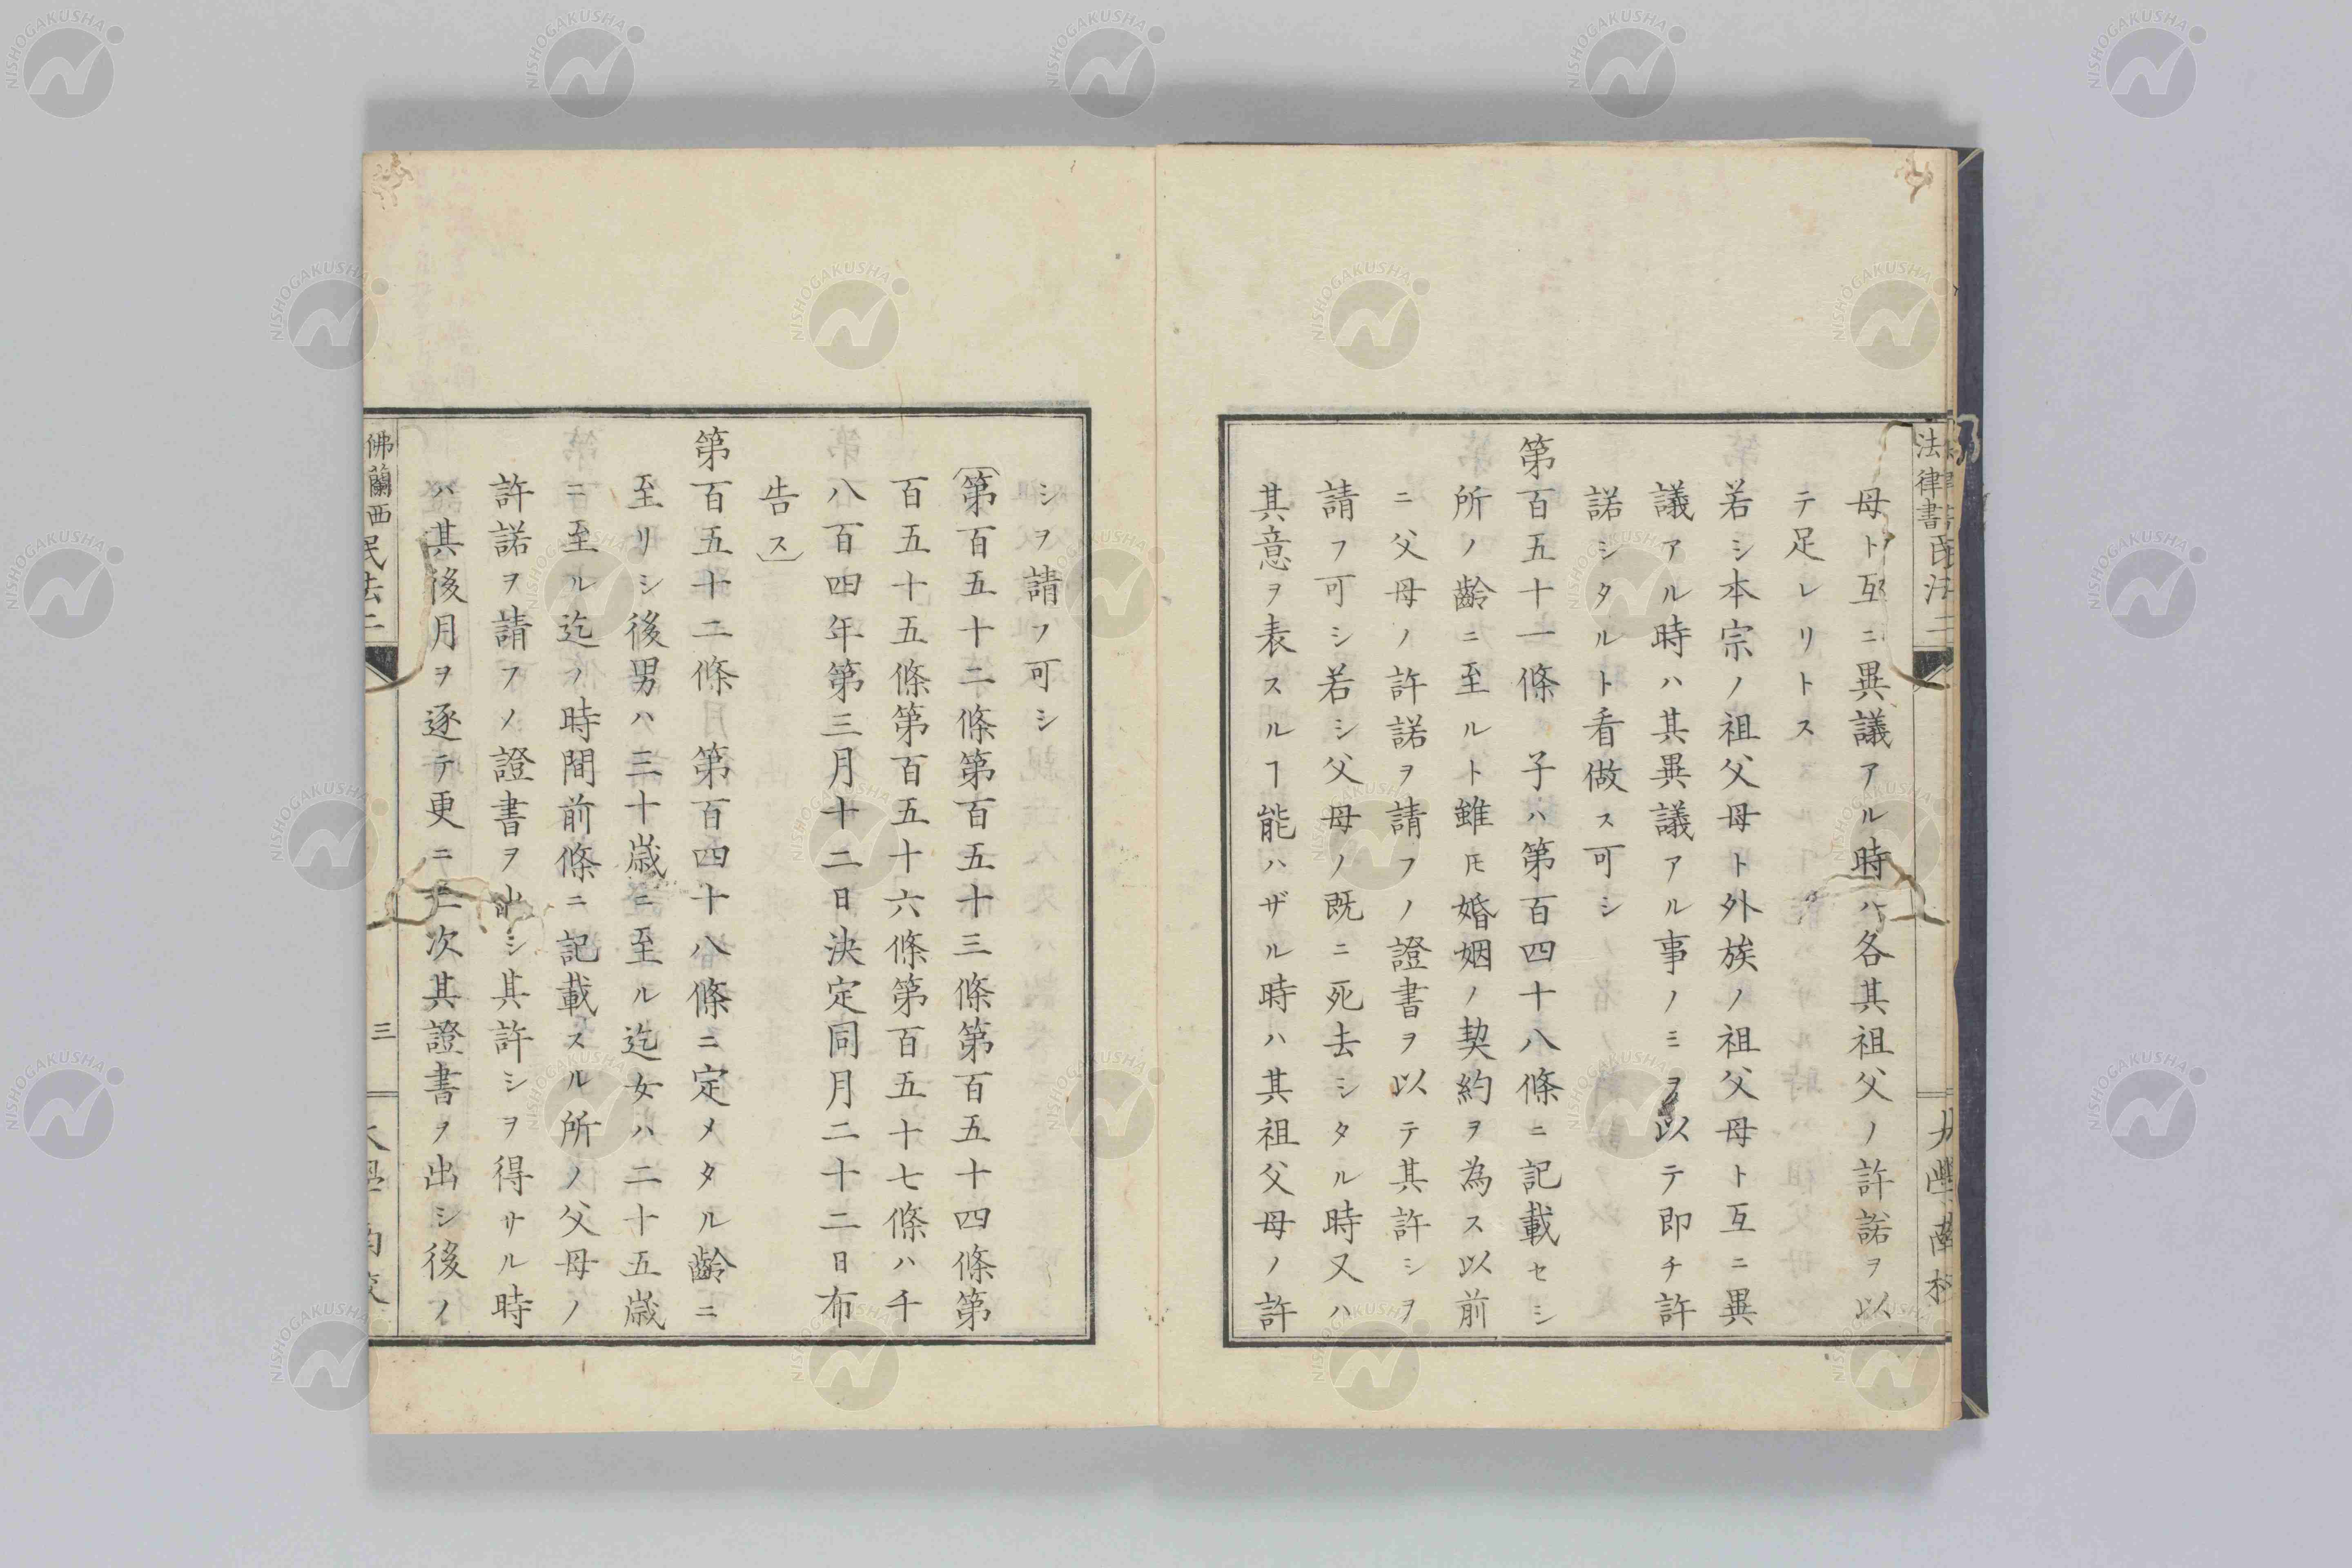 母ト互ニ異議アル時ハ各其祖父ノ許諾ヲ以
テ足レリトス
若シ本宗ノ祖父母ト外族ノ祖父母ト互ニ異
議アル時ハ其異議アル事ノミヲ以テ即チ許
諾シタルト看做ス可シ
第百五十一條 子ハ第百四十八條ニ記載セシ
所ノ齡ニ至ルト雖𪜈婚姻ノ契約ヲ為ス以前
ニ父母ノ許諾ヲ請フノ證書ヲ以テ其許シヲ
請フ可シ若シ父母ノ既ニ死去シタル時又ハ
其意ヲ表スルヿ能ハザル時ハ其祖父母ノ許
シヲ請フ可シ
〔第百五十二條第百五十三條第百五十四條第
百五十五條第百五十六條第百五十七條ハ千
八百四年第三月十二日決定同月二十二日布
告ス〕
第百五十二條 第百四十八條ニ定メタル齡ニ
至リシ後男ハ三十歳ニ至ル迄女ハ二十五歳
ニ至ル迄ノ時間前條ニ記載スル所ノ父母ノ
許諾ヲ請フノ證書ヲ出シ其許シヲ得サル時
ハ其後月ヲ逐テ更ニ二次其證書ヲ出シ後ノ
佛蘭西民法二
三
大學南校
NISHOGAKUSHA